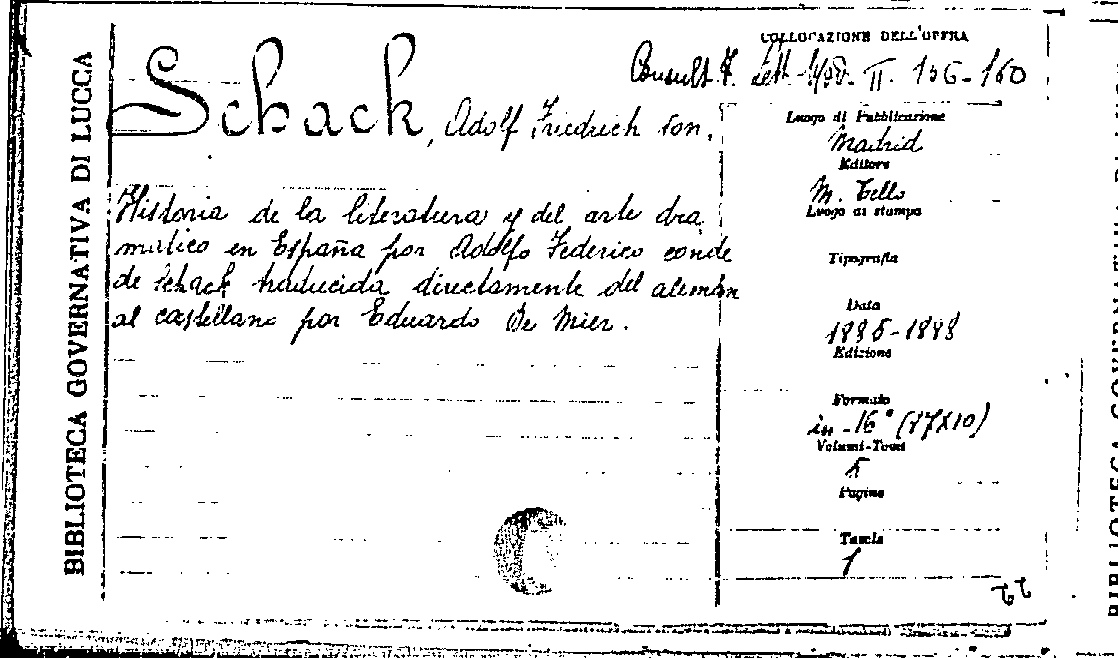 BIBLIOTECA GOVERNATIVA DI LUCCA
COLLOCAZIONE DELL'OPERA
Consult. F. Lett. II. 156-160
Schack, Adolf Friedrich von.
Historia de la literatura y del arte dra
matico en España por Adolfo Federico conde
de Schack traducida directamente del alemán
al castellano por Eduardo De Mier.
Luogo di Pubblicazione
Madrid
Editore
M. Tello
Luogo di stampa
Tipografia
Data
1885-1888
Edizione
Formato
in-16° (17X10)
Volumi-Tomi
5
Pagine
Tavole
1